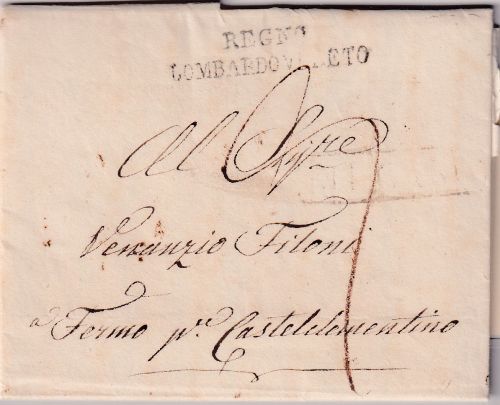 REGNO
LOMBARDOVENETO
Al Sigre
Venanzio Filoni
a Fermo pr Castelclementino